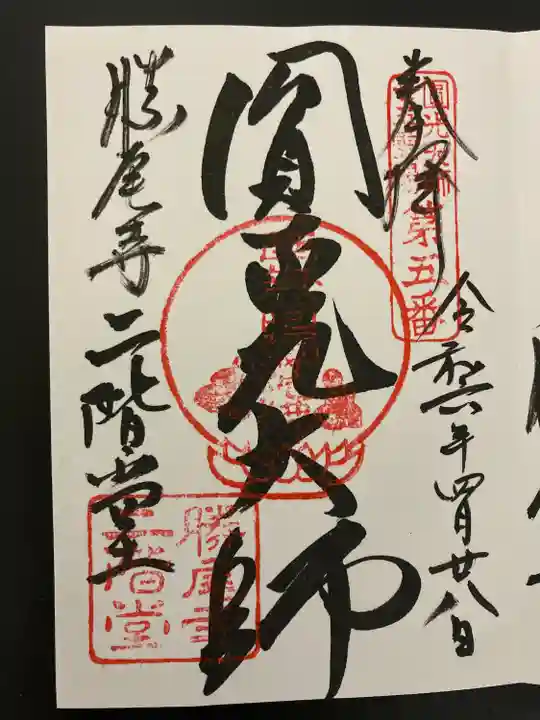 奉拝
圓光大師
第五番
令和六年四月廿八日
圓光大師
勝尾寺二階堂
勝尾寺
二階堂